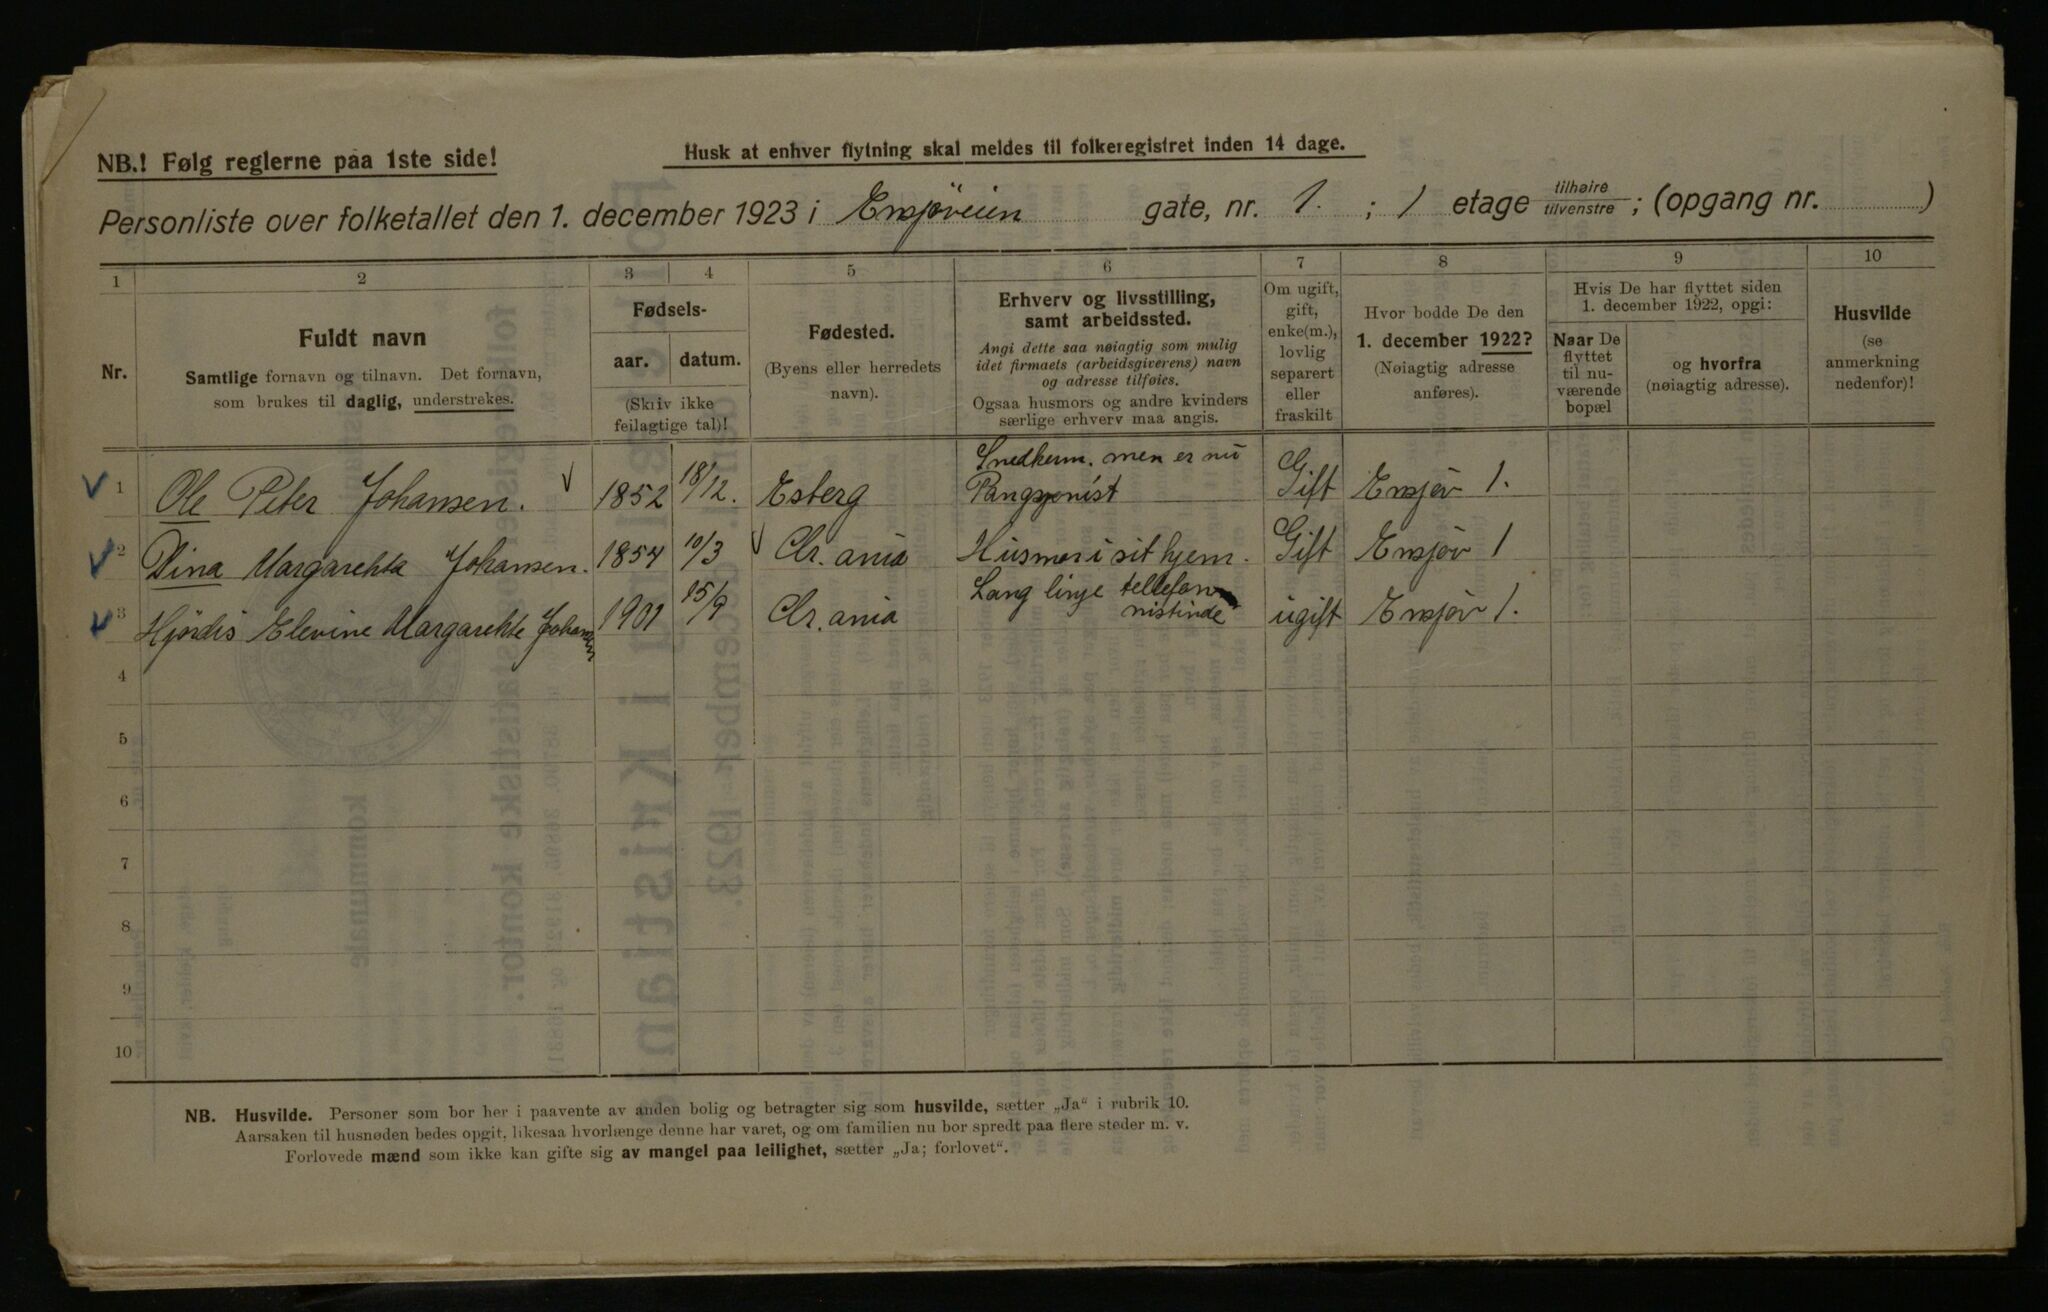 NB.! Følg reglerne paa 1ste side!
Husk at enhver flytning skal meldes til folkeregistret inden 14 dage.
Personliste over folketallet den 1. december 1923 i Ensjøveien gate, nr. 1. ; 1 etage tilhøire tilvenstre ; (opgang nr. )
1 2 3 4 5 6 7 8 9 10
Nr.
Fuldt navn
Samtlige fornavn og tilnavn. Det fornavn,
som brukes til daglig, understrekes.
Fødsels-
aar. datum.
(Skriv ikke
feilagtige tal)!
Fødested.
(Byens eller herredets
navn).
Erhverv og livsstilling,
samt arbeidssted.
Angi dette saa nøiagtig som mulig
idet firmaets (arbeidsgiverens) navn
og adresse tilføies.
Ogsaa husmors og andre kvinders
særlige erhverv maa angis.
Om ugift,
gift,
enke(m.),
lovlig
separert
eller
fraskilt
Hvor bodde De den
1. december 1922?
(Nøiagtig adresse
anføres).
Hvis De har flyttet siden
1. december 1922, opgi:
Naar De
flyttet
til nu-
værende
bopæl
og hvorfra
(nøiagtig adresse).
Husvilde
(se
anmerkning
nedenfor)!
1 Ole Peter Johansen. 1852 18/12. Esberg Snedkerm. men er nu Pangsjonist Gift Ensjøv 1.
2 Dina Margarehta Johansen. 1854 10/3 Chr. ania Husmor i sit hjem. Gift Ensjøv 1
3 Hjørdis Elevine Margarehte Johansen 1901 15/9 Chr. ania Lang linje tellefonnistinde ugift Ensjøv 1.
4
5
6
7
8
9
10
NB. Husvilde. Personer som bor her i paavente av anden bolig og betragter sig som husvilde, sætter „Ja“ i rubrik 10.
Aarsaken til husnøden bedes opgit, likesaa hvorlænge denne har varet, og om familien nu bor spredt paa flere steder m. v.
Forlovede mænd som ikke kan gifte sig av mangel paa leilighet, sætter „Ja; forlovet“.